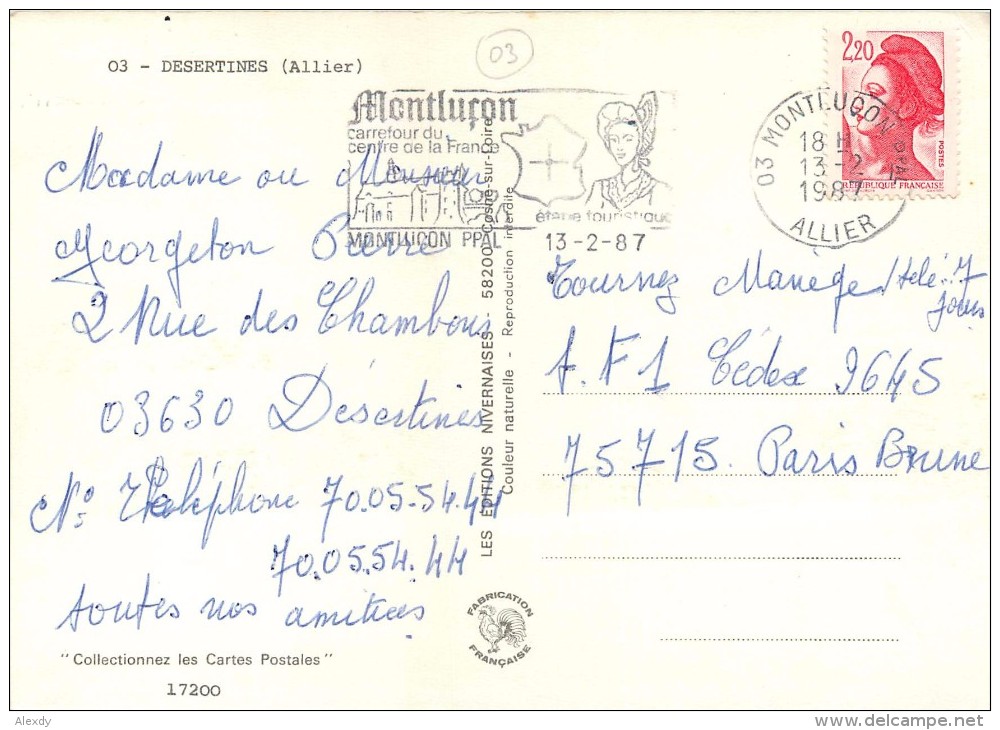 03
03 - DESERTINES (Allier)
Montluçon
carrefour du
centre de la France
étape touristique
MONTLUÇON PPAL 13-2-87
03 MONTLUÇON PPAL
18 H
13-2
1987
ALLIER
2,20
POSTES
RÉPUBLIQUE FRANÇAISE
Madame ou Monsieur
Georgeton Pierre
2 Rue des Chambons
03630 Désertines
No Téléphone 70.05.54.44
70.05.54.44
toutes nos amitiées
"Collectionnez les Cartes Postales"
17200
LES ÉDITIONS NIVERNAISES - 58200 Cosne-sur-Loire
Couleur naturelle - Reproduction interdite
FABRICATION
FRANÇAISE
Tournez Manège/télé.7
Jours
T.F1 Cédex 9645
75715. Paris Brune
Alexdy
www.delcampe.net